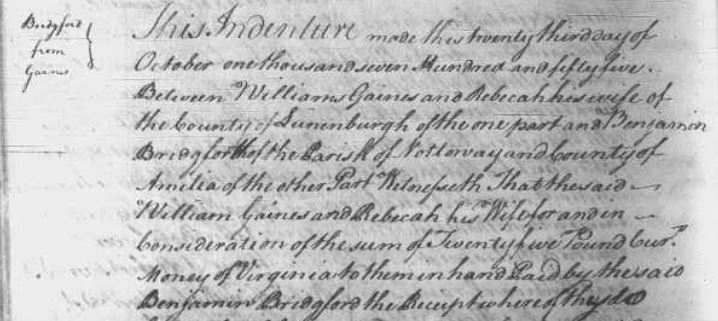 Bridgford
from
Gains
This Indenture made this twenty third day of
October one thousand seven Hundred and fifty five.
Between William Gaines and Rebecah his wife of
the County of Lunenburgh of the one part and Benjamin
Bridgforth of the Parish of Nottoway and County of
Amelia of the other Part Witnesseth That the said
William Gaines and Rebecah his Wife for and in
Consideration of the sum of Twenty five Pound Curr.
Money of Virginia to them in hand Paid by the said
Benjamin Bridgford the Receipt whereof they do